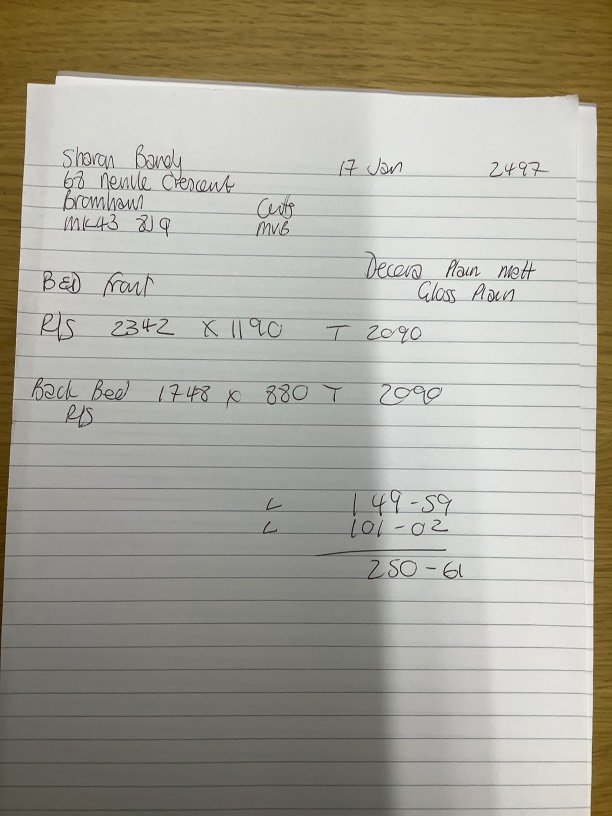 Sharan Bandy
17 Jan 2497
68 Nenile Crescent
Bromham
MK43 8JQ
MVB
Decora Plain Matt
Gloss Plain
Bed Front
R/S 2342 X 1190 T 2090
Back Bed 1748 x 880 T 2090
R/S
149-59
101-02
250-61